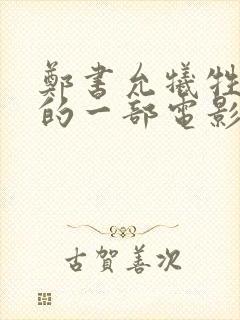 鄭書允犧牲
的一部電影
古賀善次